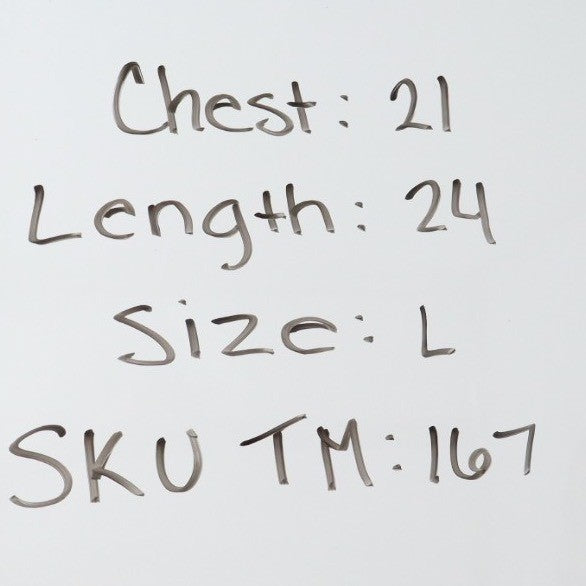 Chest: 21
Length: 24
Size: L
SKU TM:167